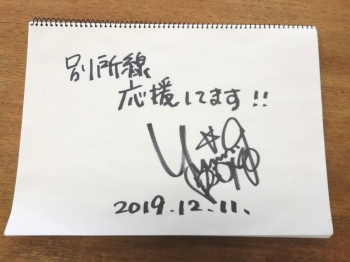 別所線
応援してます!!
2019.12.11.